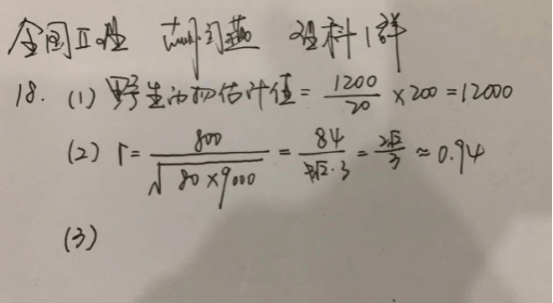 全国Ⅱ卷 理科1群
18. (1) 野生动物估计值 = 1200/20 × 200 = 12000
(2) r = 800/√(80×9000) = = 2√2/3 ≈ 0.94
(3)